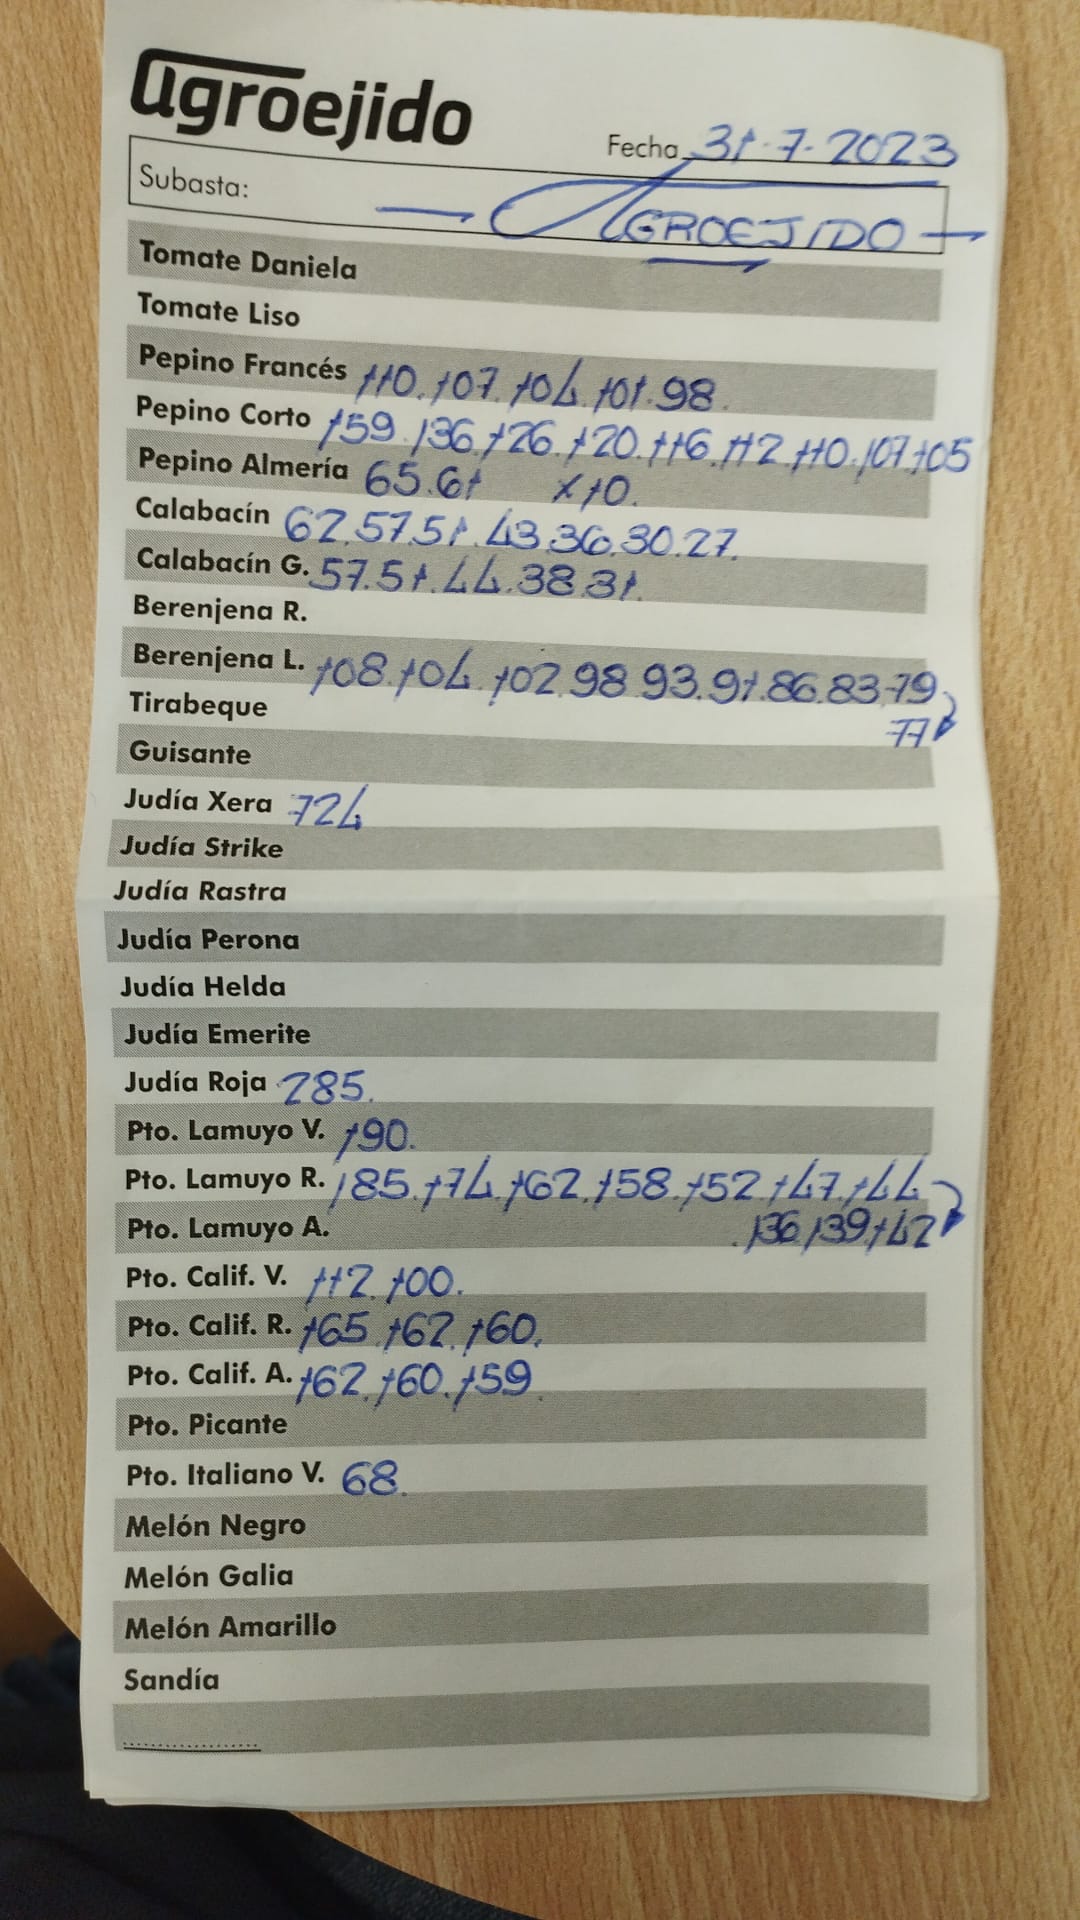 agroejido
Fecha 31-7-2023
Subasta: AGROEJIDO
Tomate Daniela
Tomate Liso
Pepino Francés 110.107.104.101.98.
Pepino Corto 159.136.126.120.116.112.110.107.105
Pepino Almería 65.61 x 10.
Calabacín 62.57.51.43.36.30.27.
Calabacín G. 57.51.44.38.31.
Berenjena R.
Berenjena L. 108.104.102.98.93.91.86.83.79
77
Tirabeque
Guisante
Judía Xera 724
Judía Strike
Judía Rastra
Judía Perona
Judía Helda
Judía Emerite
Judía Roja 285.
Pto. Lamuyo V. 190.
Pto. Lamuyo R. 185.174.162.158.152.147.144
.136.139.142
Pto. Lamuyo A.
Pto. Calif. V. 112.100.
Pto. Calif. R. 165.162.160.
Pto. Calif. A. 162.160.159.
Pto. Picante
Pto. Italiano V. 68.
Melón Negro
Melón Galia
Melón Amarillo
Sandía